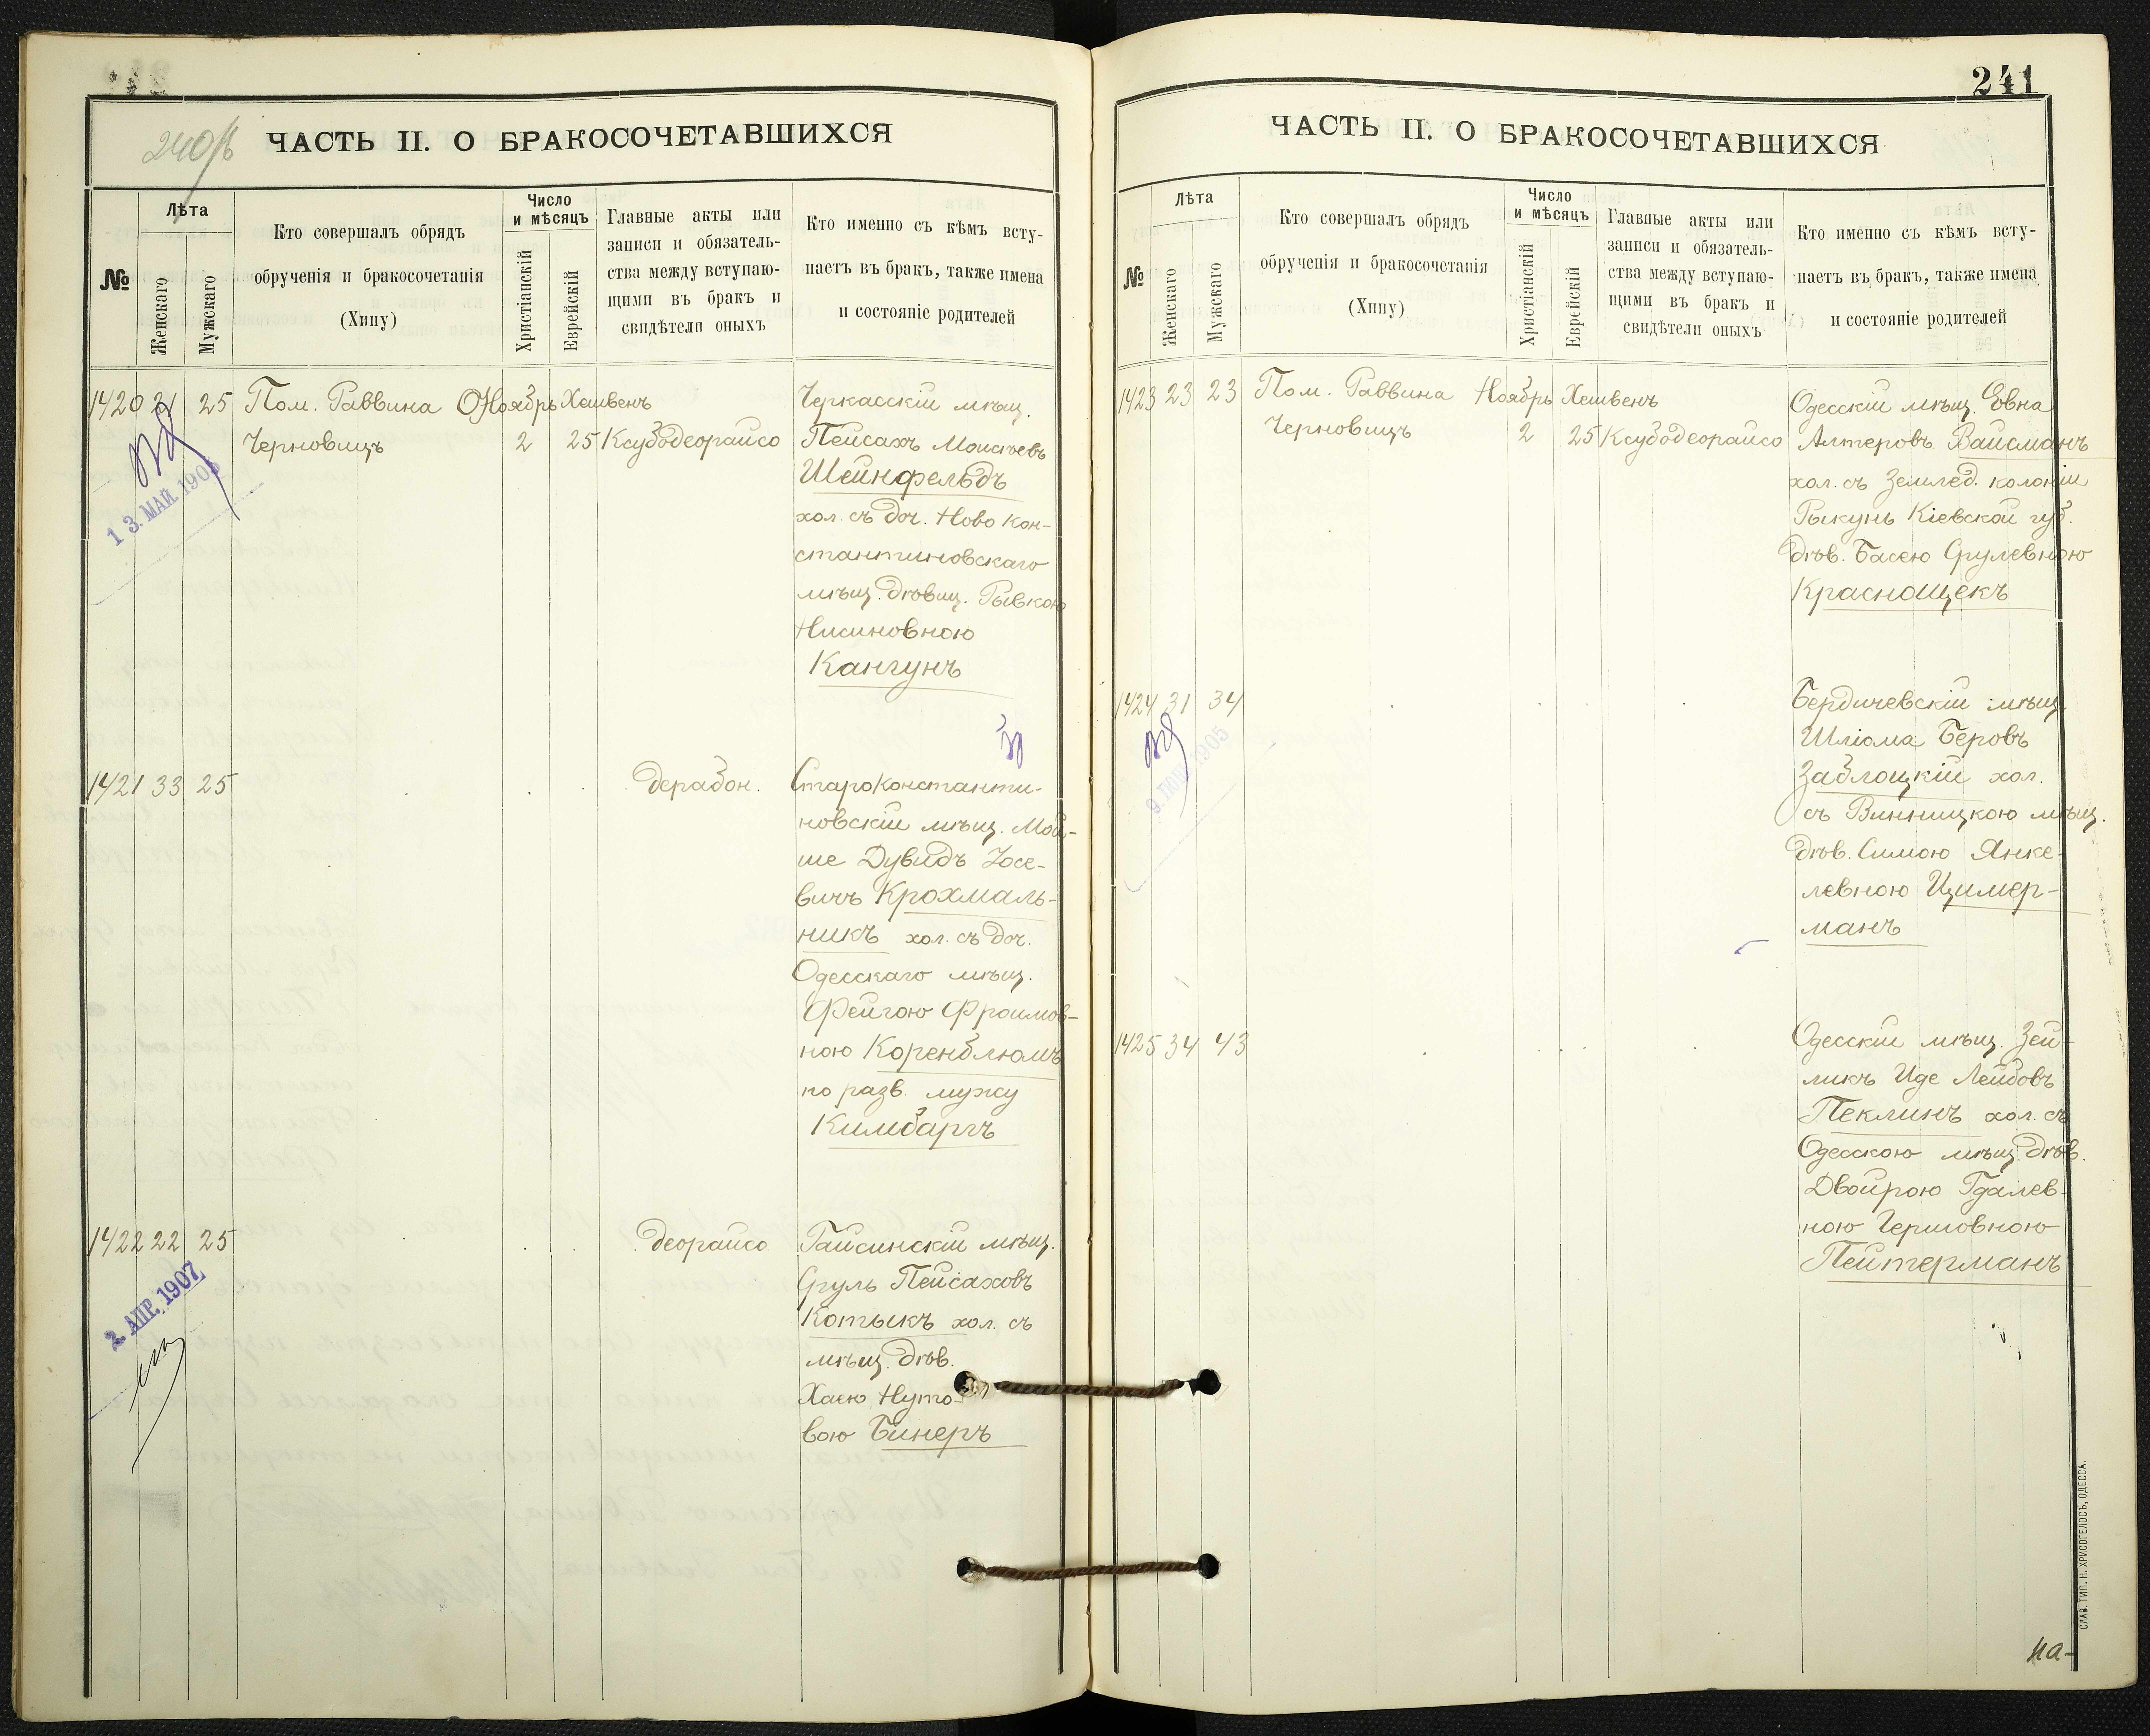 240/б
ЧАСТЬ II. О БРАКОСОЧЕТАВШИХСЯ
№
Лѣта
Женскаго
Мужскаго
Кто совершалъ обрядъ
обрученія и бракосочетанія
(Хипу)
Число
и мѣсяцъ
Христіанскій
Еврейскій
Главные акты или
записи и обязатель-
ства между вступаю-
щими въ бракъ и
свидѣтели оныхъ
Кто именно съ кѣмъ всту-
паетъ въ бракъ, также имена
и состояніе родителей
1420 21 25 Пом. Раввина Ноябрь Хешвенъ Черкасскій мѣщ.
Черновицъ 2 25 Ксубодеорайсо Пейсахъ Моисѣевъ
Шейнфельдъ
хол. съ доч. Ново Кон-
стантиновскаго
мѣщ. дѣвиц. Рывкою
Нисиновною
Кангунъ
13. МАЙ. 190
1421 33 25 дерабон. Староконстанти-
новскій мѣщ. Мой-
ше Дувидъ Іосе-
вичъ Крохмаль-
никъ хол. съ доч.
Одесскаго мѣщ.
Фейгою Фроимов-
ною Коренблюмъ
по разв. мужу
Кимбаргъ
1422 22 25 деорайсо Гайсинскій мѣщ.
Сруль Пейсаховъ
Котыкъ хол. съ
мѣщ. дѣв.
Хаею Нуто-
вою Бинеръ
2. АПР. 1907
241
ЧАСТЬ II. О БРАКОСОЧЕТАВШИХСЯ
№
Лѣта
Женскаго
Мужскаго
Кто совершалъ обрядъ
обрученія и бракосочетанія
(Хипу)
Число
и мѣсяцъ
Христіанскій
Еврейскій
Главные акты или
записи и обязатель-
ства между вступаю-
щими въ бракъ и
свидѣтели оныхъ
Кто именно съ кѣмъ всту-
паетъ въ бракъ, также имена
и состояніе родителей
1423 23 23 Пом. Раввина Ноябрь Хешвенъ Одесскій мѣщ. Евна
Черновицъ 2 25 Ксубодеорайсо Алтеровъ Вайсманъ
хол. съ Землед. колоніи
Рыкунь Кіевской губ.
дѣв. Басею Срулевною
Краснощекъ
1424 31 34 Бердичевскій мѣщ.
Шліома Беровъ
Заблоцкій хол.
съ Винницкою мѣщ.
дѣв. Симою Янке-
левною Цимер-
манъ
1905
1425 34 43 Одесскій мѣщ. Зей-
ликъ Иде Лейбовъ
Пеклинъ хол. съ
Одесскою мѣщ. дѣв.
Двойрою Гдалев-
ною Гершовною
Пейтерманъ
СЛАВ. ТИП. Н. ХРИСОГЕЛОСЪ, ОДЕССА.
На-